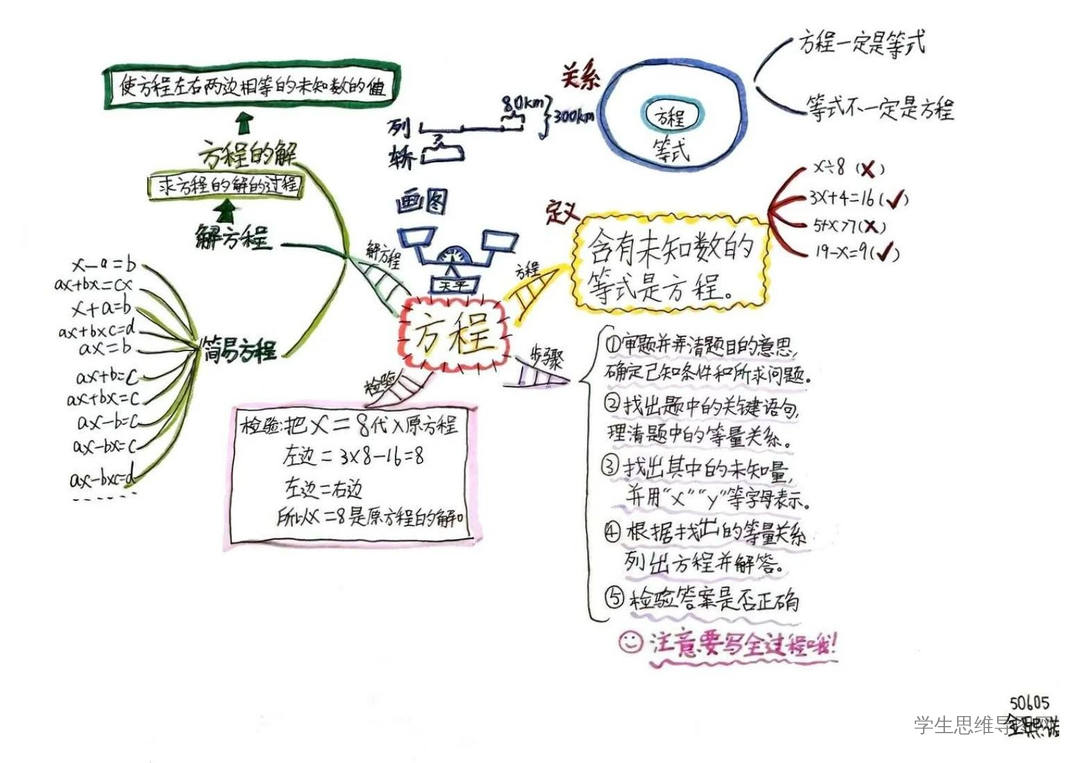 使方程左右两边相等的未知数的值
方程的解
求方程的解的过程
解方程
x-a=b
ax+bx=cx
x+a=b
ax+bxc=d
ax=b
ax+b=c
ax+bx=c
ax-b=c
ax-bx=c
ax-bxc=d
简易方程
解方程
列
轿
80km
300km
画图
天平
方程
关系
方程
等式
方程一定是等式
等式不一定是方程
定义
方程
含有未知数的
等式是方程。
x÷8(✗)
3x+4=16(✓)
5+x>7(✗)
19-x=9(✓)
检验
检验:把x=8代入原方程
左边=3×8-16=8
左边=右边
所以x=8是原方程的解
步骤
①审题并弄清题目的意思,
确定已知条件和所求问题。
②找出题中的关键语句,
理清题中的等量关系。
③找出其中的未知量,
并用“x”“y”等字母表示。
④根据找出的等量关系
列出方程并解答。
⑤检验答案是否正确
注意要写全过程哦!
50605
学生思维导图网